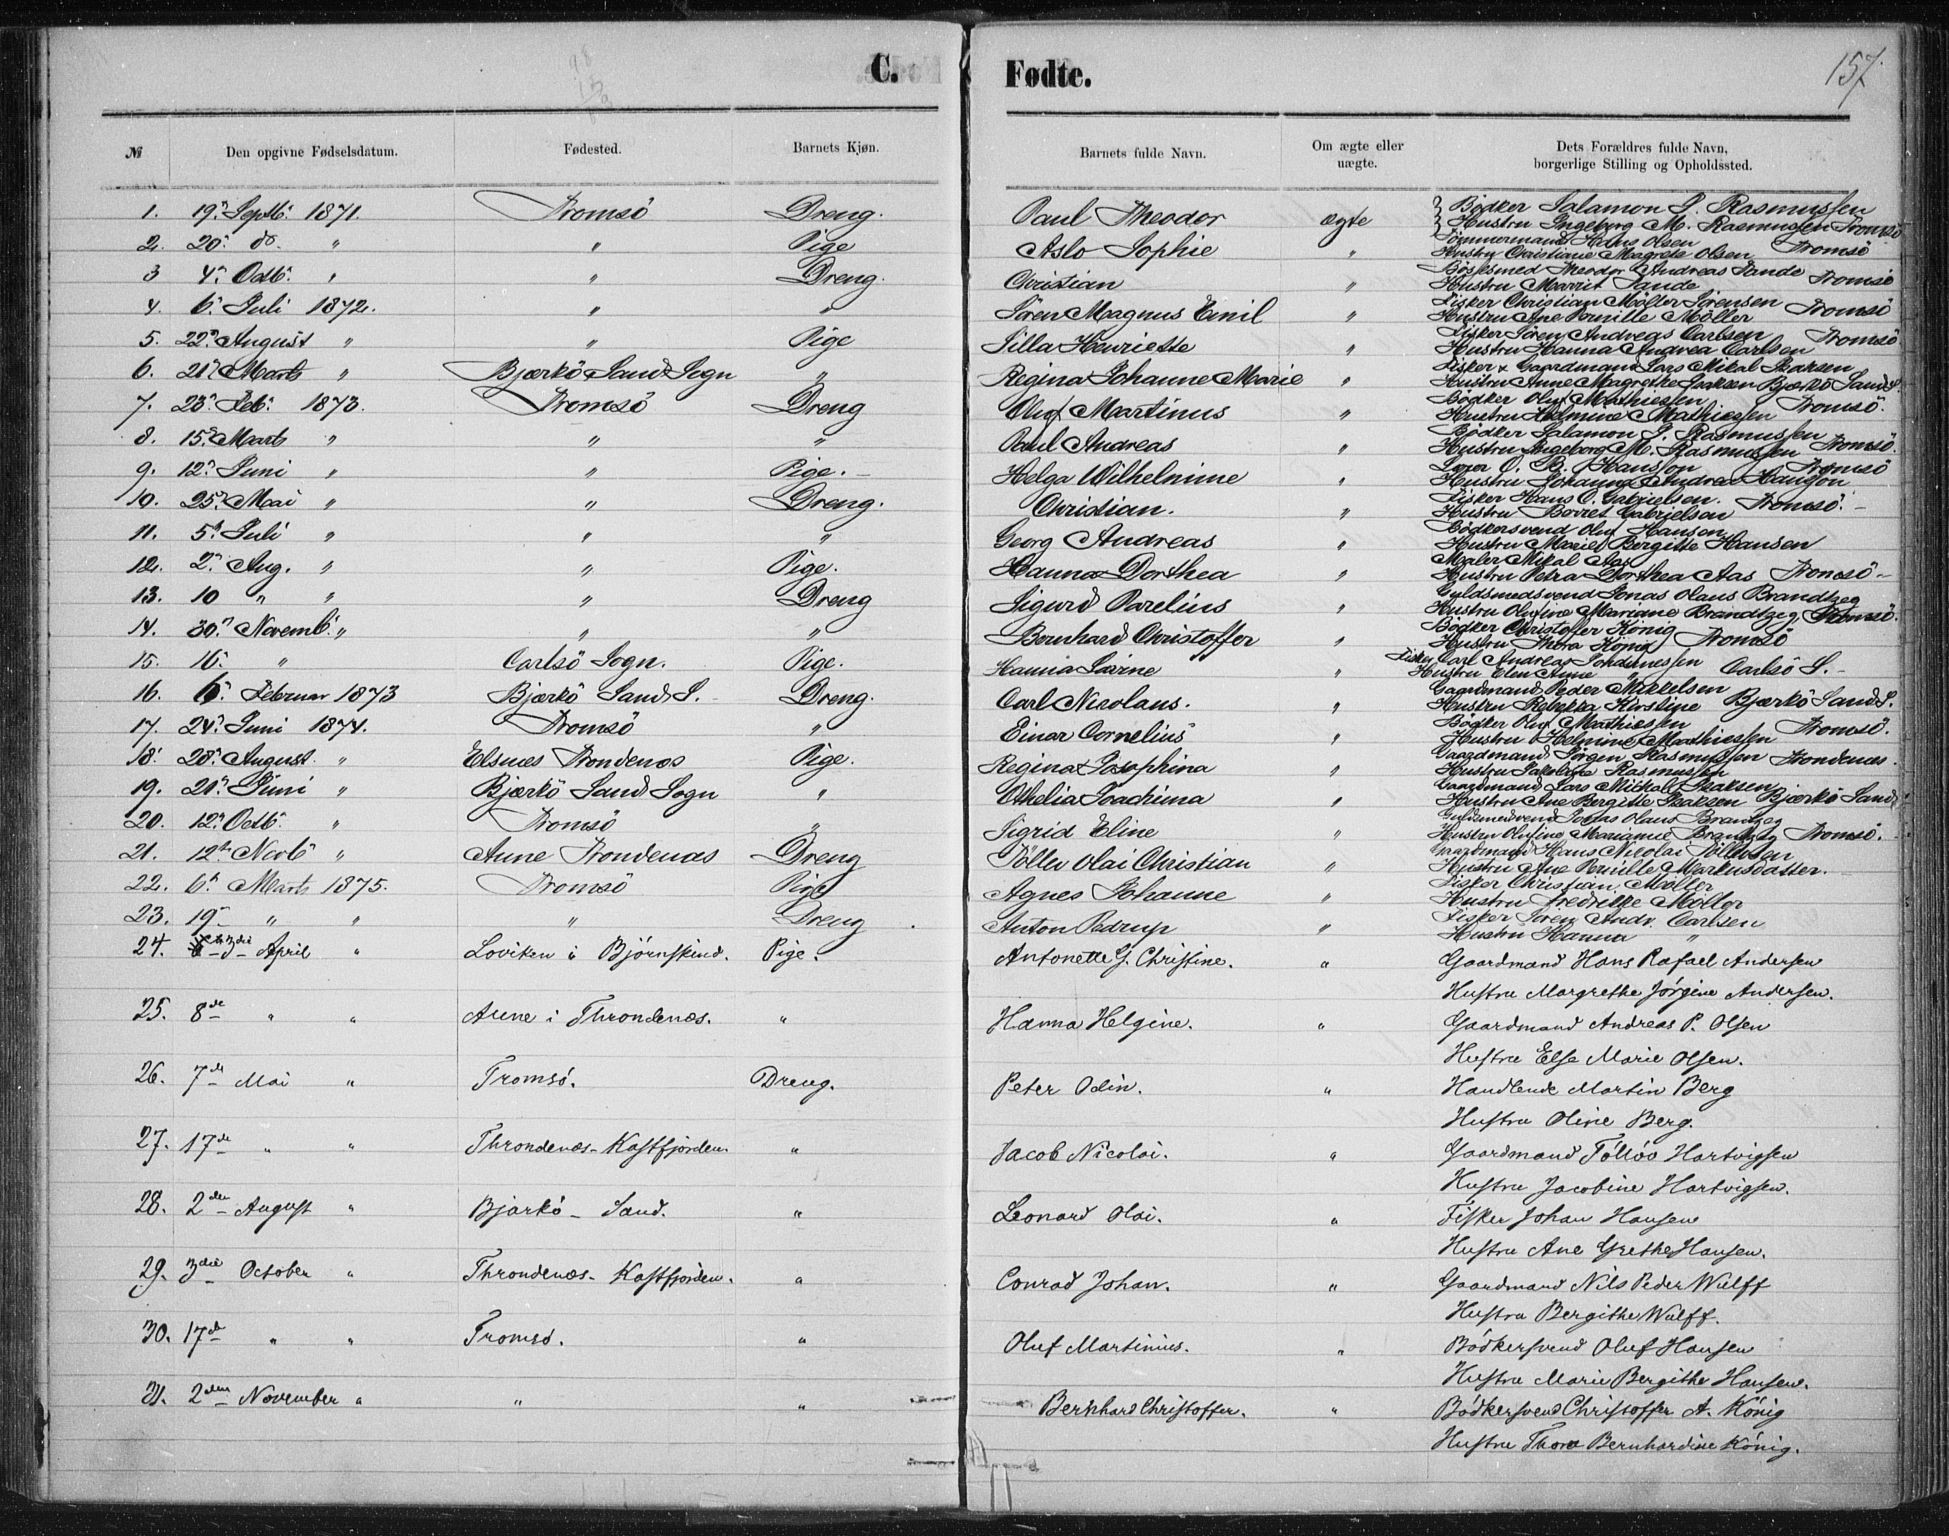 C. Fødte. 157.
№ Den opgivne Fødselsdatum. Fødested. Barnets Kjøn. Barnets fulde Navn. Om ægte eller uægte. Dets Forældres fulde Navn, borgerlige Stilling og Opholdssted.
1. 19. Septb. 1871. Tromsö Dreng. Paul Theodor ægte Bødker Salamon P. Rasmussen
Hustru Ingeborg M. Rasmussen Tromsö
2. 20. do. " " Pige Aslo Sophie " Tømmermand Hans Olsen
Hustru Christiane Magrete Olsen Tromsö
3 4. Octb. " " Dreng. Christian " Bøssesmed Theodor Andreas Sande
Hustru Marrit Sande Tromsö
4. 6. Juli 1872. " " Sören Magnus Emil " Fisker Christian Møller Sørensen
Hustru Ane Pernille Møller Tromsö
5. 22. August " " Pige Silla Henriette " Fisker Søren Andreas Carlsen
Hustru Hanna Andrea Carlsen Tromsö
6. 21. Marts " Bjærkö Sand Sogn " Regina Johanne Marie " Fisker & Gaardmand Lars Mikal Isaksen
Hustru Anne Magrethe Isaksen Bjærkö Sand S.
7. 23. Feb. 1873. Tromsö Dreng Oluf Martinus " Bødker Oluf Mathiesen
Hustru Helmine Mathiesen Tromsö.
8. 15. Marts " " " Paul Andreas " Bødker Salamon P. Rasmussen
Hustru Ingeborg M. Rasmussen Tromsö.
9. 12. Juni " " Pige. Helga Wilhelmine " O. B. Hansson
Hustru Johanna Andrea Hansson Tromsö
10. 25. Mai " " Dreng. Christian. " Fisker Hans O. Gabrielsen.
Hustru Berret Gabrielsen Tromsö.
11. 5. Juli " " " Georg Andreas " Bødkersvend Oluf Hanson
Hustru Mariel Bergitte Hansen
12. 2. Aug. " " Pige. Hanna Dorthea " Maler Mikal Aas
Hustru Petra Dorthea Aas Tromsö
13. 10 " " " Dreng Sigurd Parelius " Guldsmedsvend Jonas Olaus Brandtzeg
Hustru Olufine Mariane Brandtzeg Tromsö.
14. 30. Novemb. " " " Bernhard Christoffer " Bödker Christoffer König
Hustru Thora König Tromsö
15. 16. " Carlsö Sogn. Pige. Hanna Lovine " Fisker Carl Andreas Johannessen
Hustru Elen Anne " Carlsö S.
16. 6. Februar 1873 Bjærkö Sand S. Dreng. Carl Nicolaus. " Gaardmand Peder Mikkelsen
Hustru Rebekka Kirstine Bjærkö Sand S.
17. 24. Juni 1874. Tromsö " Einar Cornelius " Bødker Oluf Mathiesen
Hustru Helmine Mathiesen Tromsö.
18. 28. August. " Elsnes Trondenæs Pige. Regina Josephina " Gaardmand Jørgen Rasmussen
Hustru Jakobine Rasmussen Trondenæs
19. 21. Juni " Bjærkö Sand Sogn " Othelia Joachima " Gaardmand Lars Mickall Isaksen
Hustru Ane Bergitte Isaksen Bjærkö Sand
20. 12. Octb. " Tromsö " Sigrid Eline " Guldsmedsvend Jonas Olaus Brantzeg
Hustru Olufine Marianne Brantzeg Tromsö.
21. 12te Novb " Aune Trondenæs Dreng Töllev Olai Christian " Gaardmand Hans Nicolai Töllevsen
Hustru Ane Pernille Markusdatter.
22. 6te Marts 1875. Tromsö Pige Agnes Johanne " Fisker Christian Møller
Hustru Fredrikke Møller
23. 19 " " " Dreng Anton Pedrup " Fisker Søren Andr. Carlsen
Hustru Hanna "
24. 3die April " Loviken i Bjørnskind. Pige. Antonette J. Christine. " Gaardmand Hans Rafael Andersen
Hustru Margrethe Jørgine Andersen.
25. 8de " " Aune i Throndenæs. " Hanna Helgine. " Gaardmand Andreas P. Olsen
Hustru Else Marie Olsen.
26. 7de Mai " Tromsö. Dreng. Peter Odin. " Handlende Martin Berg
Hustru Oline Berg.
27. 17de " " Throndenæs-Kastfjorden. " Jacob Nicolai. " Gaardmand Töllöv Hartvigsen
Hustru Jacobine Hartvigsen.
28. 2den August " Bjarkö - Sand. " Leonard Olai. " Fisker Johan Hansen
Hustru Ane Grethe Hansen.
29. 3die October " Throndenæs-Kastfjorden. " Conrad Johan. " Gaardmand Nils Peder Wulff
Hustru Bergithe Wulff.
30. 17de " " Tromsö. " Oluf Martinius. " Bödkersvend Oluf Hansen
Hustru Marie Bergithe Hansen.
31. 2den November " " " Bernhard Christoffer. " Bödkersvend Christoffer A. König
Hustru Thora Bernhardine König.